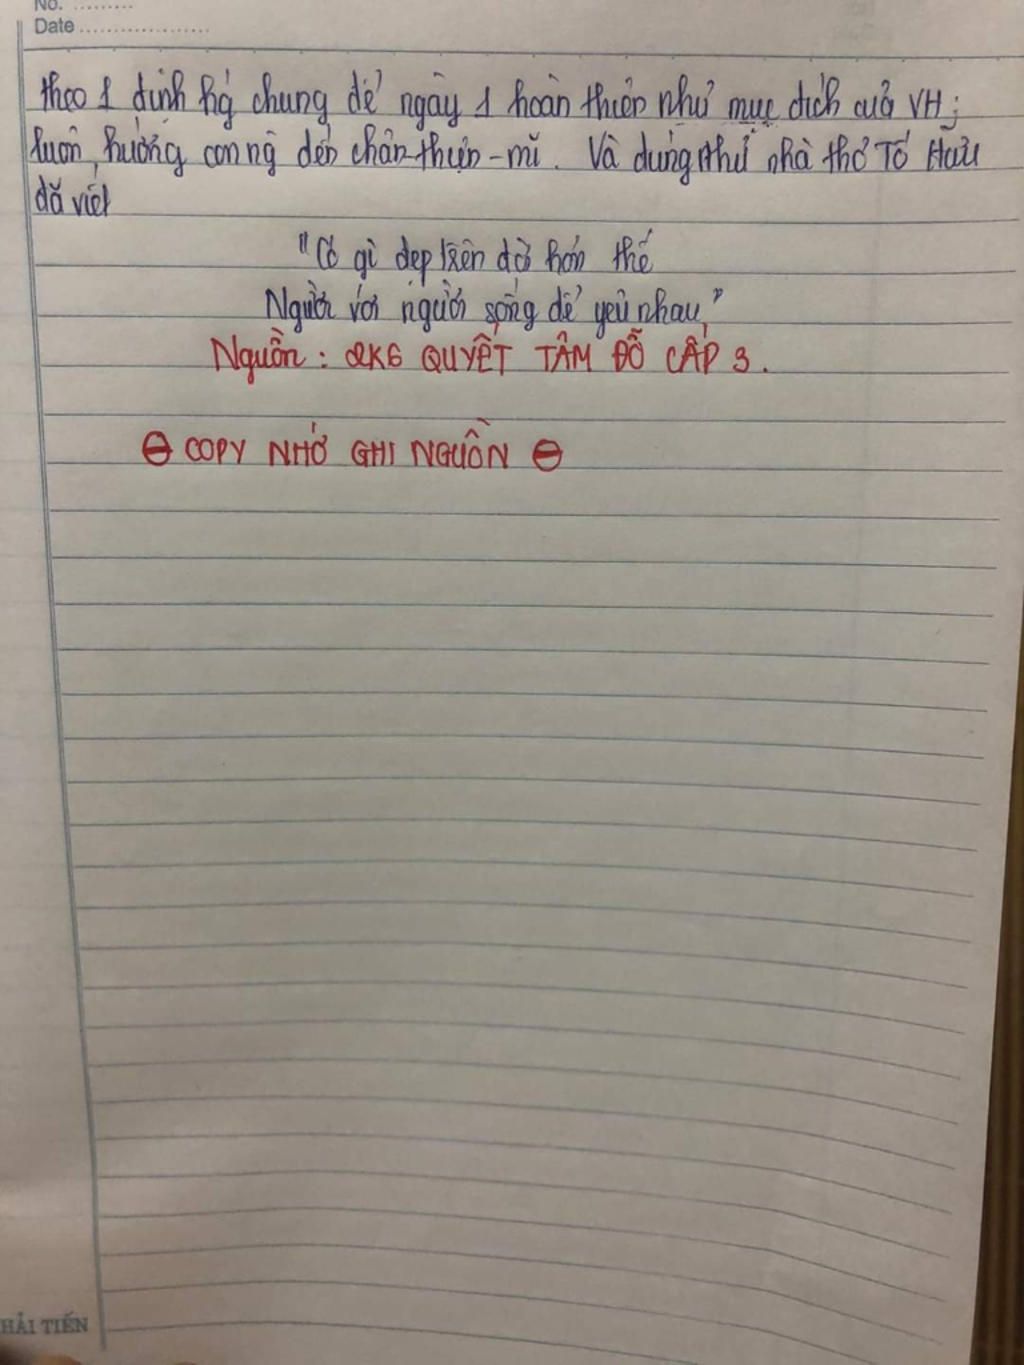 No. .........
Date ....................
theo 1 định hg chung để ngày 1 hoàn thiện như mục đích của VH;
luôn hướng con ng đến chân-thiện-mĩ. Và đúng như nhà thơ Tố Hữu
đã viết
"Có gì đẹp trên đời hơn thế
Người với người sống để yêu nhau"
Nguồn: 2K6 QUYẾT TÂM ĐỖ CẤP 3.
⊖ COPY NHỚ GHI NGUỒN ⊖
HẢI TIẾN